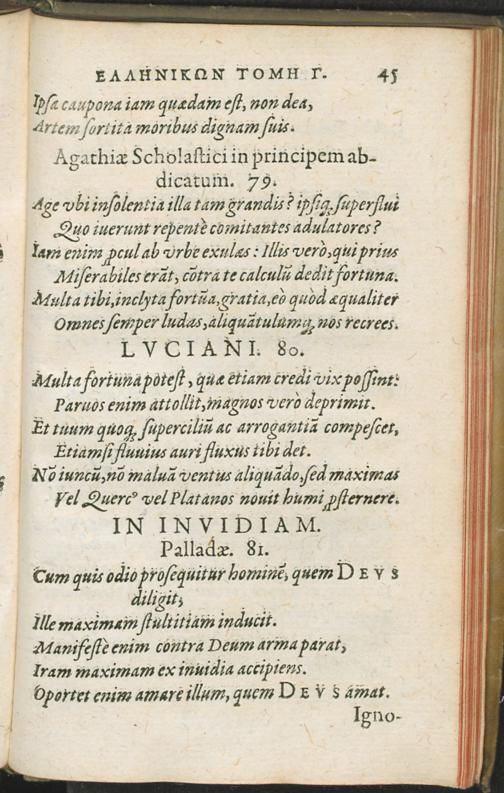 ΕΛΛΗΝΙΚΩΝ ΤΟΜΗ Γ. 45
Ipsa caupona iam quædam est, non dea,
Artem sortita moribus dignam suis.
Agathiæ Scholastici in principem ab-
dicatum. 79.
Age vbi insolentia illa tam grandis? ipsiq; superflui
Quo iuerunt repentè comitantes adulatores?
Iam enim ꝓcul ab vrbe exulas: Illis verò, qui prius
Miserabiles erāt, cōtra te calculū dedit fortuna.
Multa tibi, inclyta fortūa, gratia, eò quòd æqualiter
Omnes semper ludas, aliquātulumq; nos recrees.
LVCIANI. 80.
Multa fortuna potest, quæ etiam credi vix possint:
Paruos enim attollit, magnos verò deprimit.
Et tuum quoq; superciliū ac arrogantiā compescet,
Etiamsi fluuius auri fluxus tibi det.
Nō iuncū, nō maluā ventus aliquādo, sed maximas
Vel Quercꝰ vel Platanos nouit humi ꝓsternere.
IN INVIDIAM.
Palladæ. 81.
Cum quis odio prosequitur hominē, quem DEVS
diligit,
Ille maximam stultitiam inducit.
Manifestè enim contra Deum arma parat,
Iram maximam ex inuidia accipiens.
Oportet enim amare illum, quem DEVS amat.
Igno-